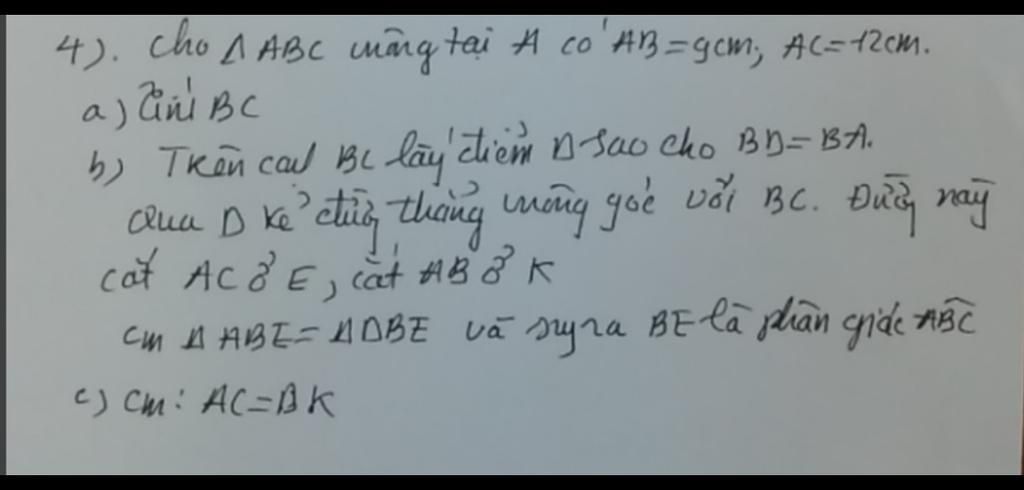 4). Cho Δ ABC vuông tại A có AB=9cm; AC=12cm.
a) Tính BC
b) Trên cạnh BC lấy điểm D sao cho BD=BA.
Qua D kẻ đường thẳng vuông góc với BC. Đường này
cắt AC ở E, cắt AB ở K
cm Δ ABE=ΔDBE và suy ra BE là phân giác ABC
c) Cm: AC=DK